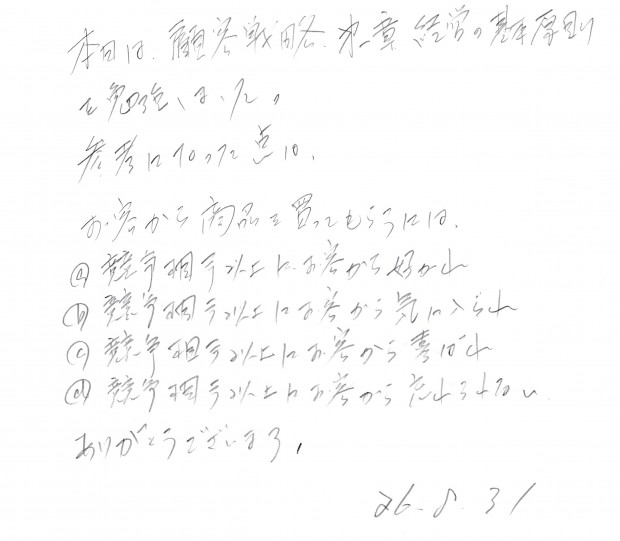 本日は、顧客戦略、第一章 経営の基本原則
を勉強しました。
参考になった点は、
お客から商品を買ってもらうには、
ⓐ競争相手以上にお客から好かれ
ⓑ競争相手以上にお客から気に入られ
ⓒ競争相手以上にお客から喜ばれ
ⓓ競争相手以上にお客から忘れられない、
ありがとうございます。
26.8.31